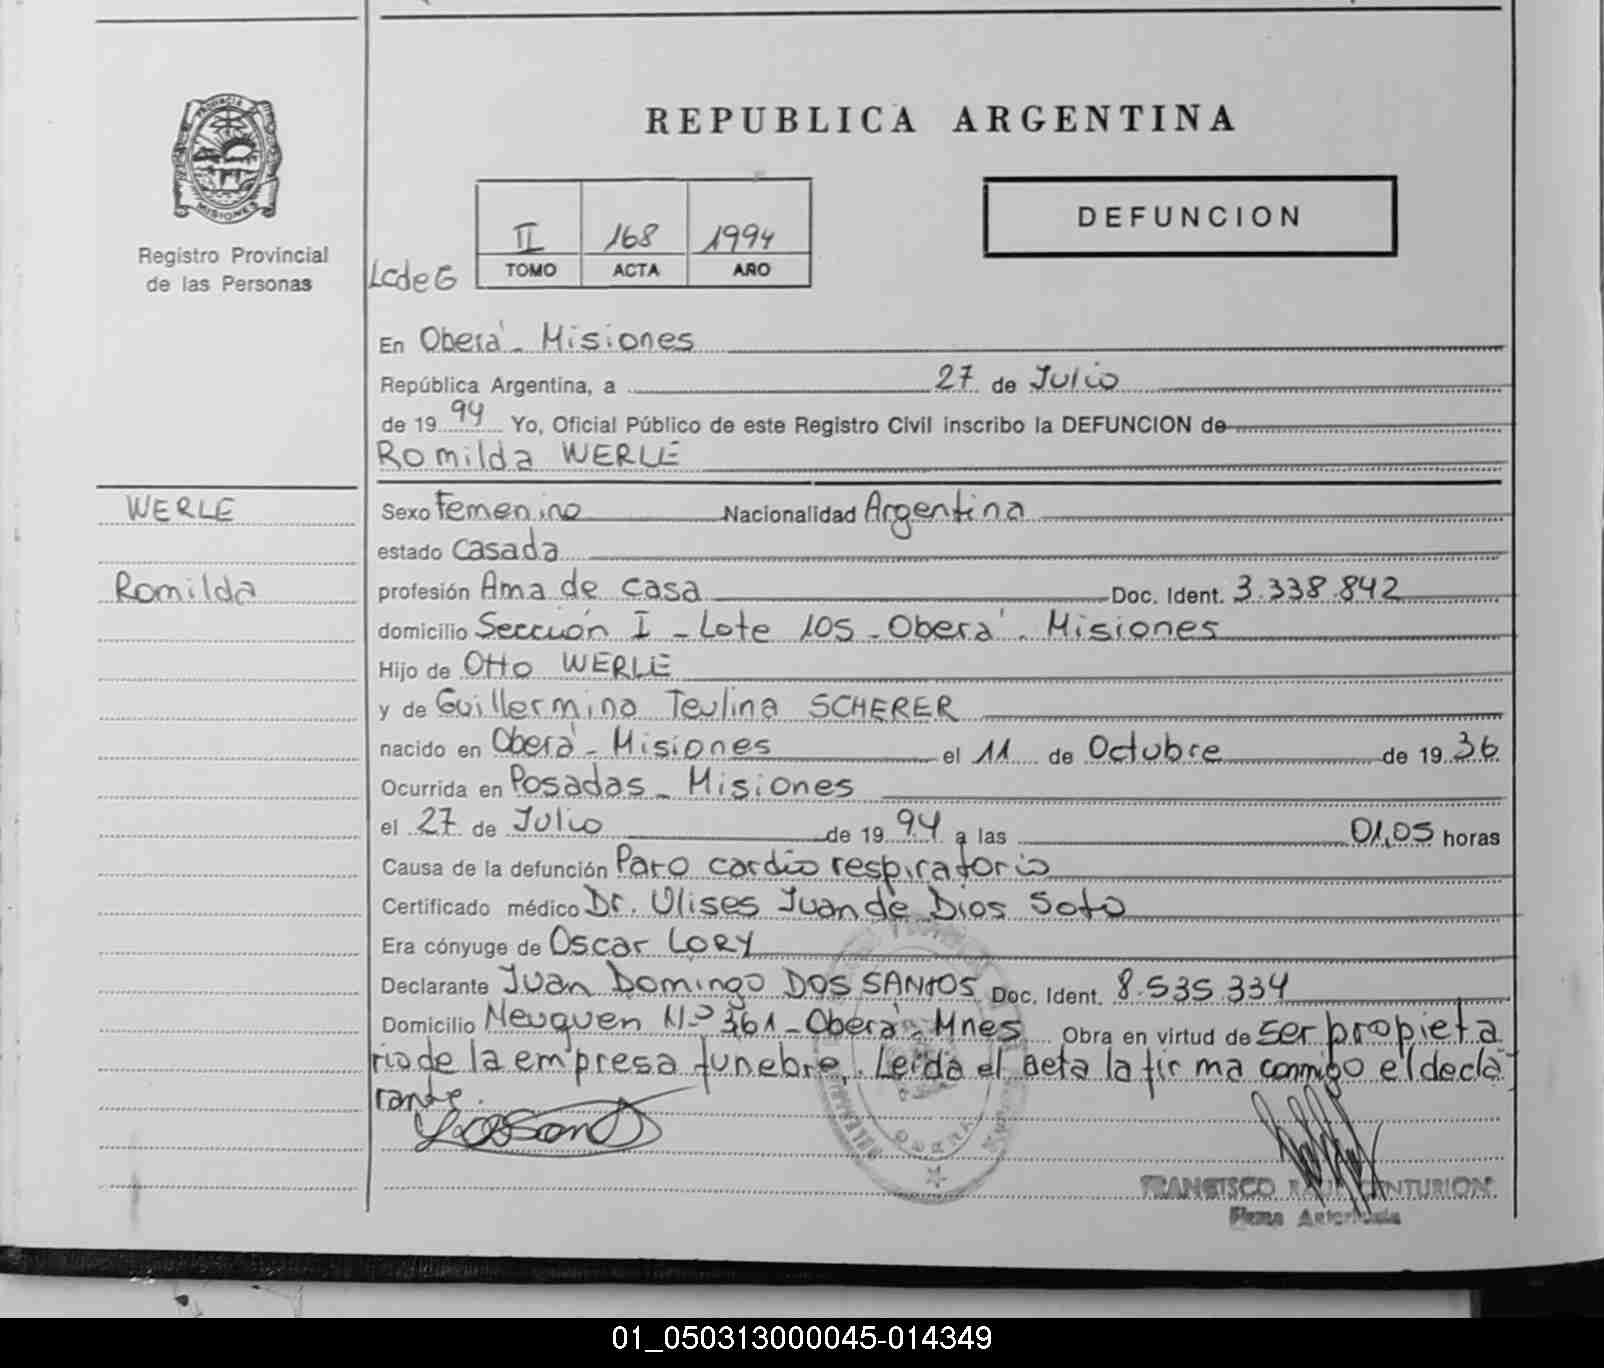 PROVINCIA DE
MISIONES
Registro Provincial
de las Personas
REPUBLICA ARGENTINA
DEFUNCION
II 168 1994
TOMO ACTA AÑO
LcdeG
En Oberá - Misiones
República Argentina, a 27 de Julio
de 1994 Yo, Oficial Público de este Registro Civil inscribo la DEFUNCION de
Romilda WERLE
WERLE
Romilda
Sexo Femenino Nacionalidad Argentina
estado Casada
profesión Ama de casa Doc. Ident. 3.338.842
domicilio Sección I - Lote 105 - Oberá - Misiones
Hijo de Otto WERLE
y de Guillermina Teulina SCHERER
nacido en Oberá - Misiones el 11 de Octubre de 1936
Ocurrida en Posadas - Misiones
el 27 de Julio de 1994 a las 01,05 horas
Causa de la defunción Paro cardio respiratorio
Certificado médico Dr. Ulises Juan de Dios Soto
Era cónyuge de Oscar LORY
Declarante Juan Domingo DOS SANTOS Doc. Ident. 8.535.334
Domicilio Neuquen Nº 361 - Oberá - Mnes Obra en virtud de ser propieta
rio de la empresa funebre. Leida el acta la firma conmigo el decla
rante.
FRANCISCO RAUL CENTURION
Firma Autorizada
01_050313000045-014349